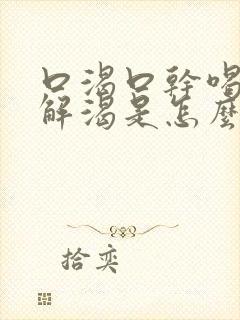 口渴口幹喝
解渴是怎麼
拾奕